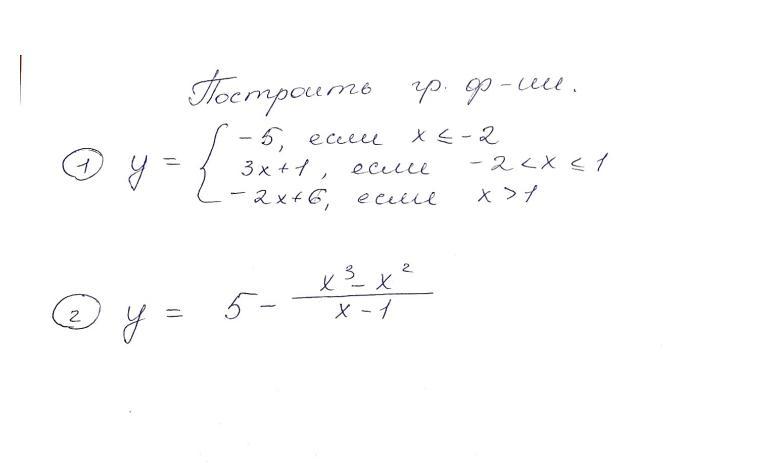 Построить гр. ф-ии.
① y = { -5, если x ≤ -2
3x+1, если -2 < x ≤ 1
-2x+6, если x > 1
② y = 5 - (x³ - x²)/(x - 1)